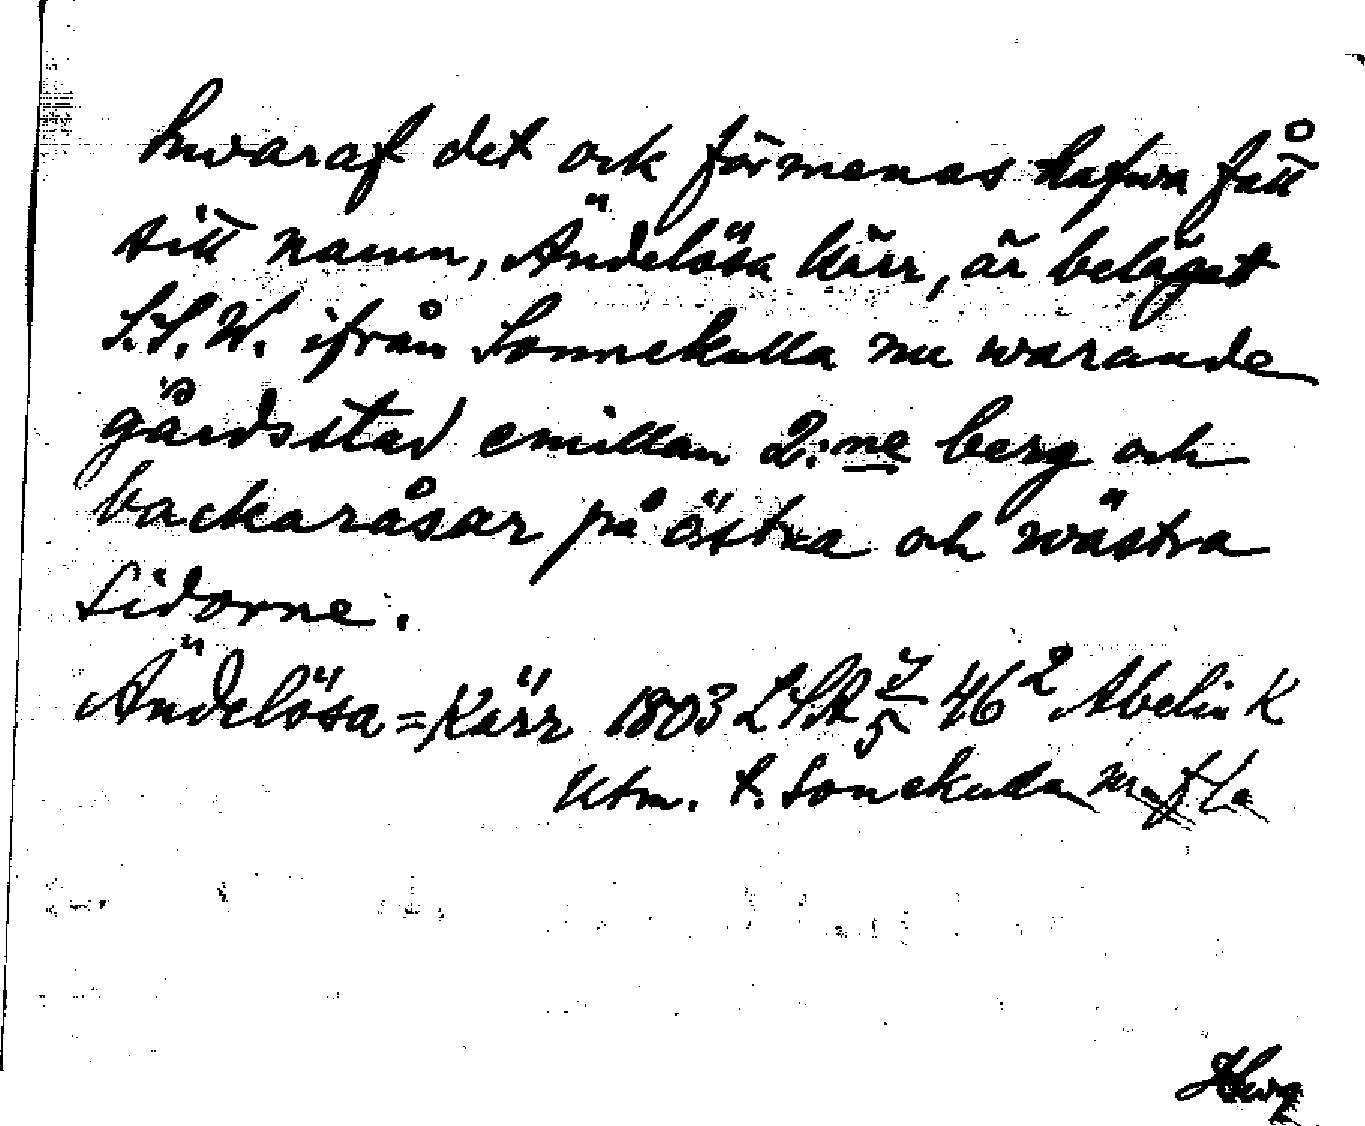 hwaraf det ock förmenas hafwa fått
sitt namn, Ändelösa kärr, är beläget
S.S.W. ifrån Sonnekulla nu warande
gårdsstad emillan 2:ne berg och
backaråsar på östra och wästra
sidorne.
Ändelösa=Kärr 1803 LSA 46² Abelin K
Utm. t. Sonekulla